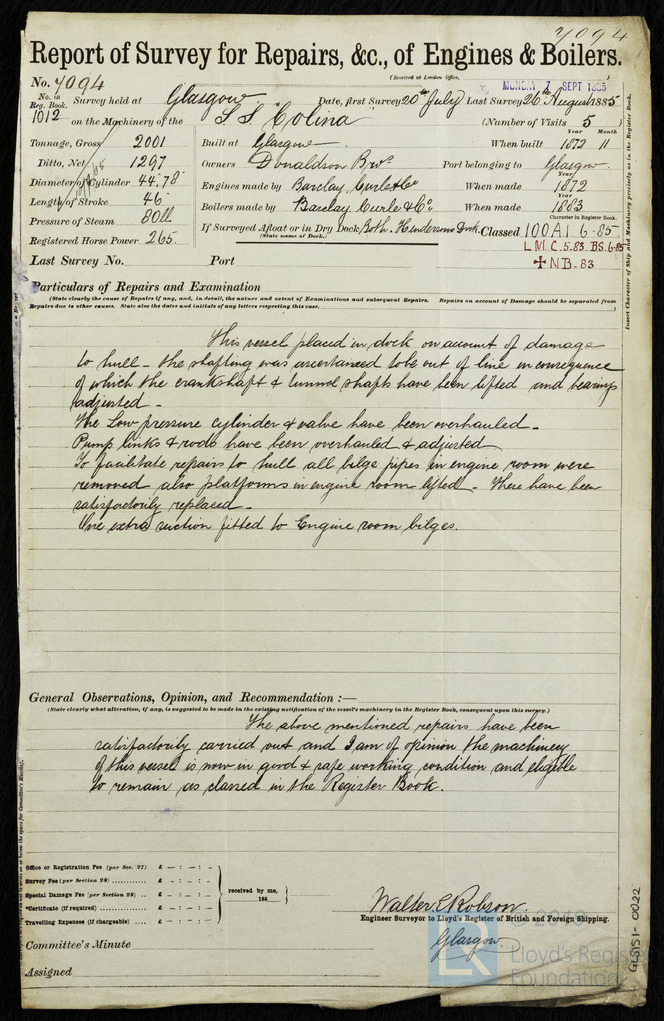 7094
Report of Survey for Repairs, &c., of Engines & Boilers.
(Received at London Office,
No. 7094
MONDAY 7 SEPT 1885
No. in Reg. Book. 1012
Survey held at Glasgow Date, first Survey 20th July Last Survey 26th August 1885
on the Machinery of the S S "Colina" (Number of Visits 5
Tonnage, Gross 2001 Built at Glasgow When built Year 1872 Month 11
Ditto, Net 1297 Owners Donaldson Bros Port belonging to Glasgow
Diameter of Cylinder 44.78 Engines made by Barclay, Curle & Co When made Year 1872
Length of Stroke 46 Boilers made by Barclay Curle & Co. When made Year 1883
Pressure of Steam 80 lb. If Surveyed Afloat or in Dry Dock Both. Hendersons Dock. Classed 100A1 6.85
(State name of Dock.) Character in Register Book.
Registered Horse Power 265. L.M.C. 5.83. B.S. 6.85
Last Survey No. Port N.B. 83
Insert Character of Ship and Machinery precisely as in the Register Book.
Particulars of Repairs and Examination
(State clearly the cause of Repairs if any, and, in detail, the nature and extent of Examinations and subsequent Repairs. Repairs on account of Damage should be separated from
Repairs due to other causes. State also the dates and initials of any letters respecting this case.
This vessel placed in dock on account of damage
to hull - the shafting was ascertained to be out of line in consequence
of which the crankshaft & tunnel shafts have been lifted and bearings
adjusted -
The Low pressure cylinder & valve have been overhauled -
Pump links & rods have been overhauled & adjusted
To facilitate repairs to hull all bilge pipes in engine room were
removed also platforms in engine room lifted - These have been
satisfactorily replaced -
One extra suction fitted to Engine room bilges.
General Observations, Opinion, and Recommendation :—
(State clearly what alteration, if any, is suggested to be made in the existing notification of the vessel's machinery in the Register Book, consequent upon this survey.)
The above mentioned repairs have been
satisfactorily carried out and I am of opinion the machinery
of this vessel is now in good & safe working condition and eligible
to remain as classed in the Register Book.
Office or Registration Fee (per Sec. 27) £ - : - : -
Survey Fee (per Section 28) £ - : - : -
Special Damage Fee (per Section 28) £ - : - : -
*Certificate (if required) £ - : - : -
Travelling Expenses (if chargeable) £ - : - : -
received by me,
188
Walter L Robson
Engineer Surveyor to Lloyd's Register of British and Foreign Shipping.
Glasgow.
Committee's Minute
Assigned
GLS151-0022
LR
© 2019
Lloyd's Register
Foundation